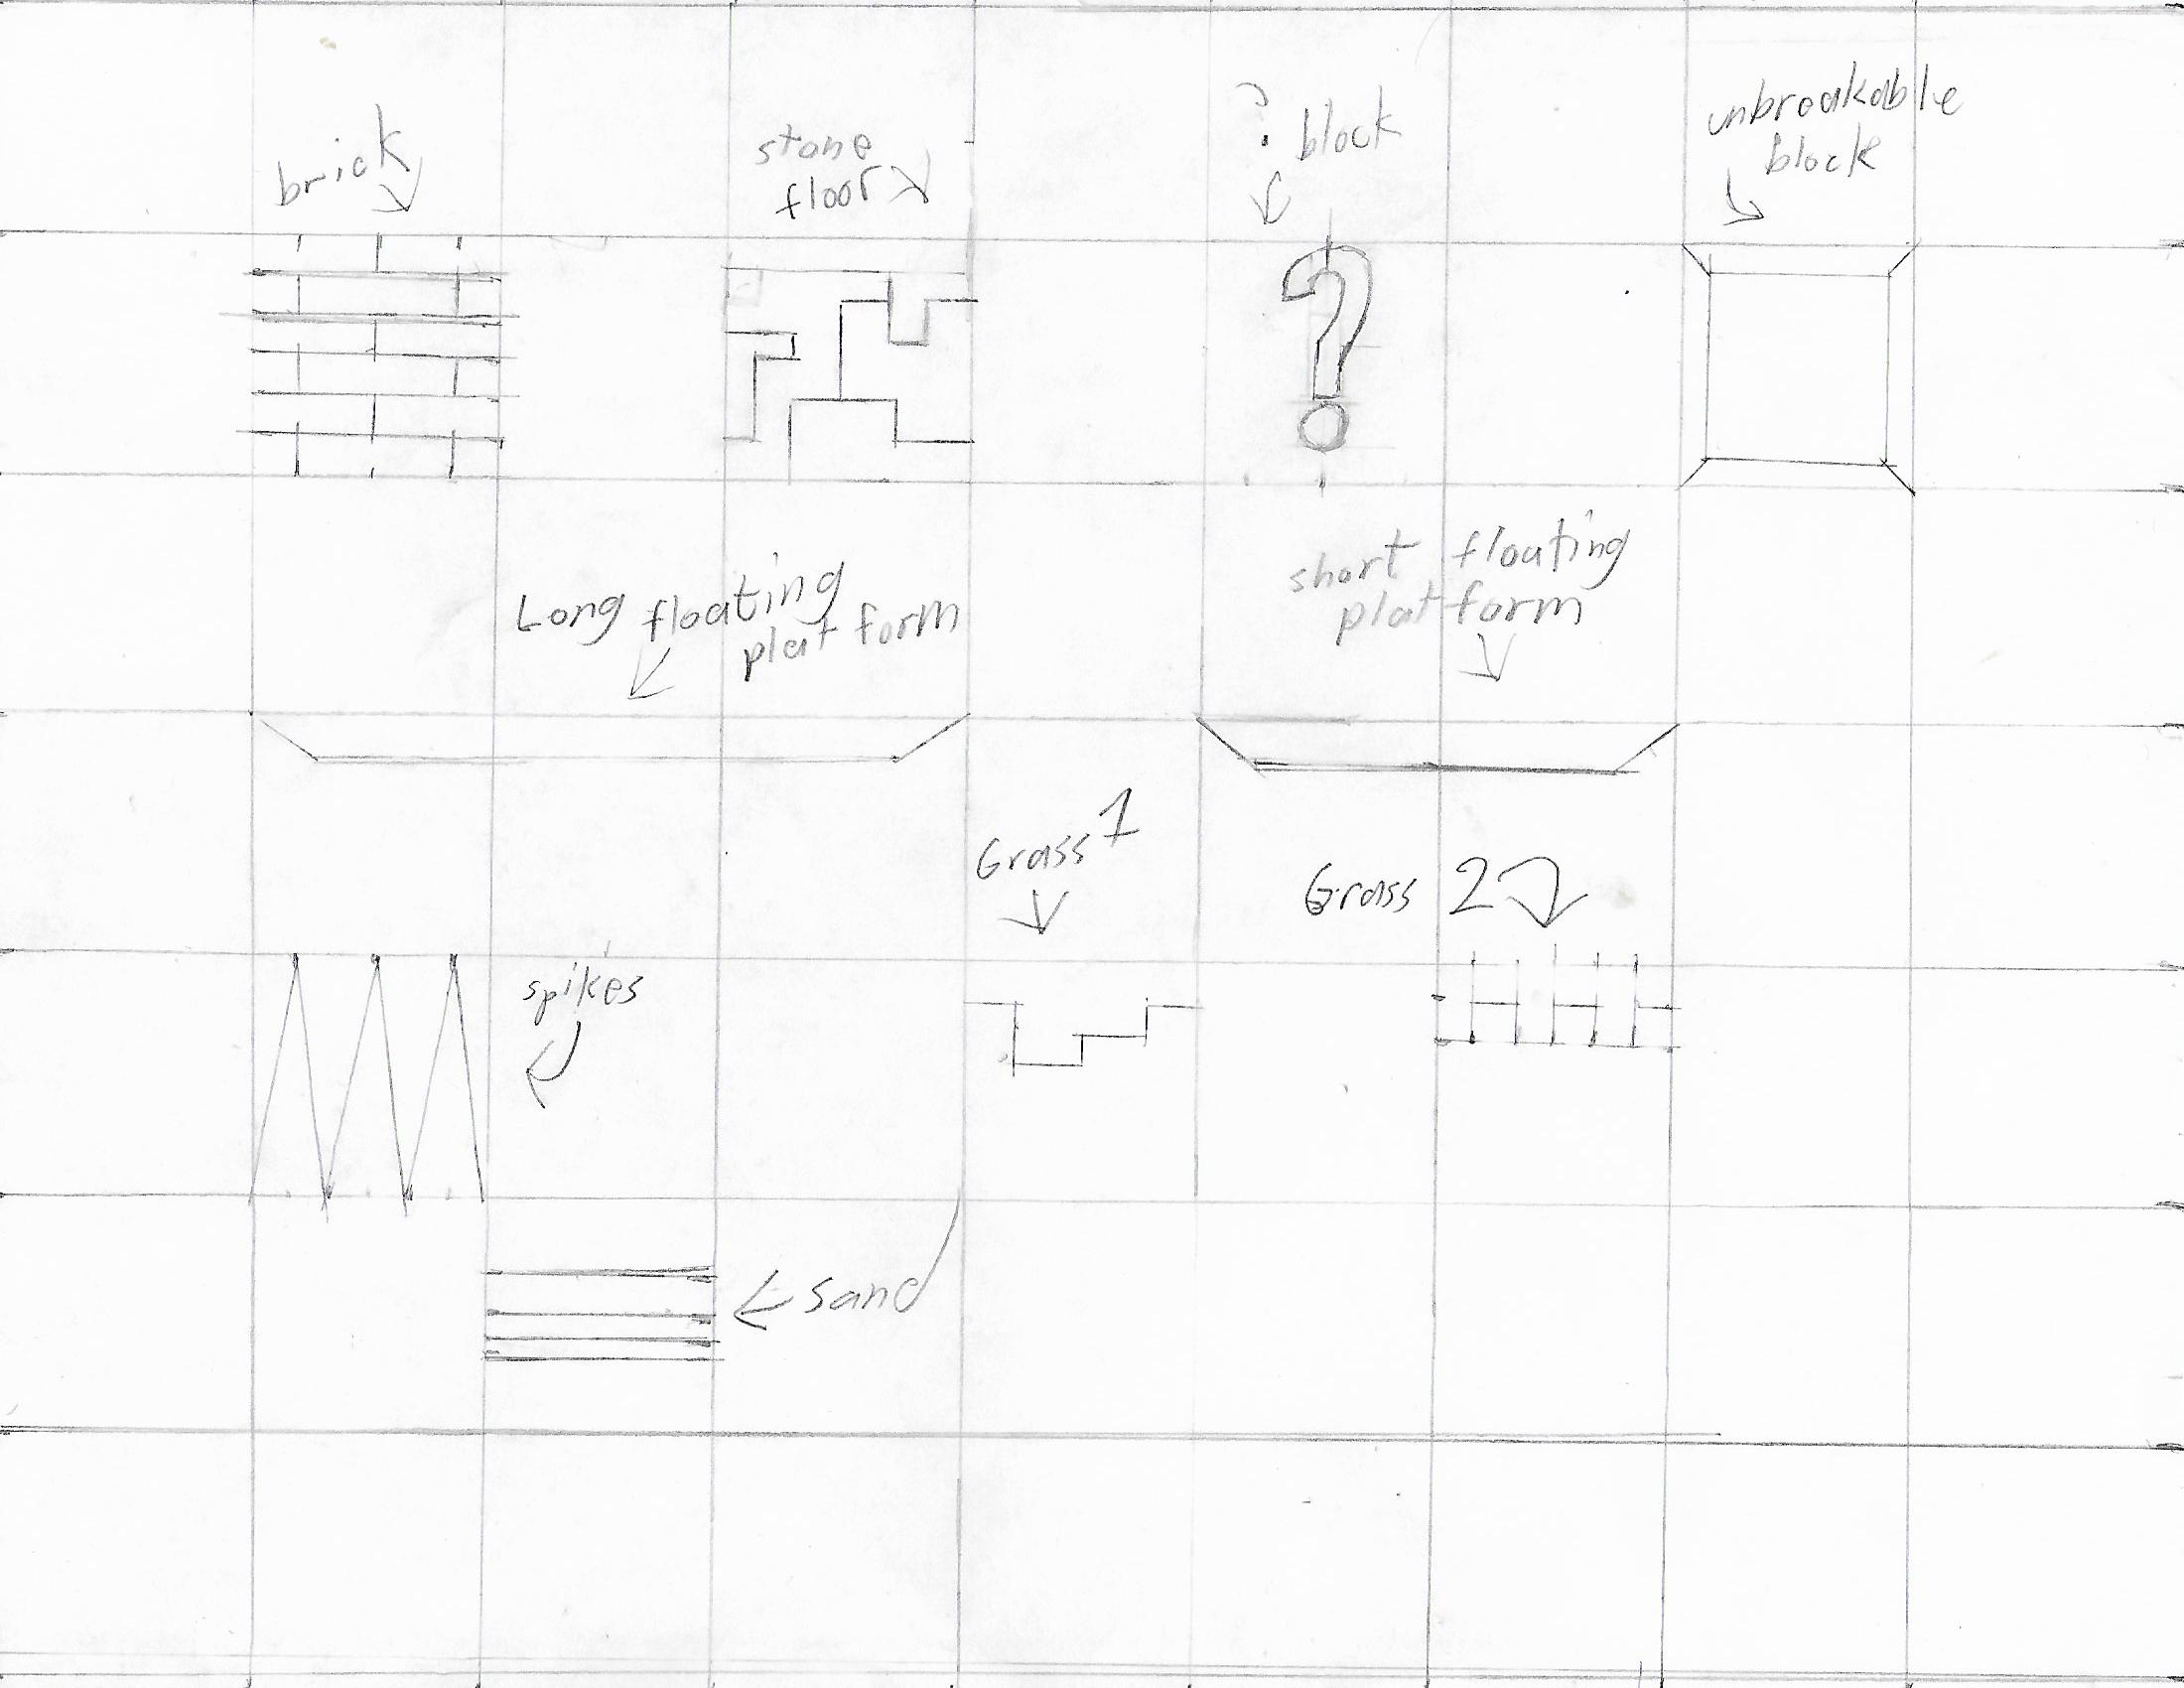 brick
stone
floor
? block
unbreakable
block
?
Long floating
platform
short floating
platform
Grass 1
Grass 2
spikes
sand